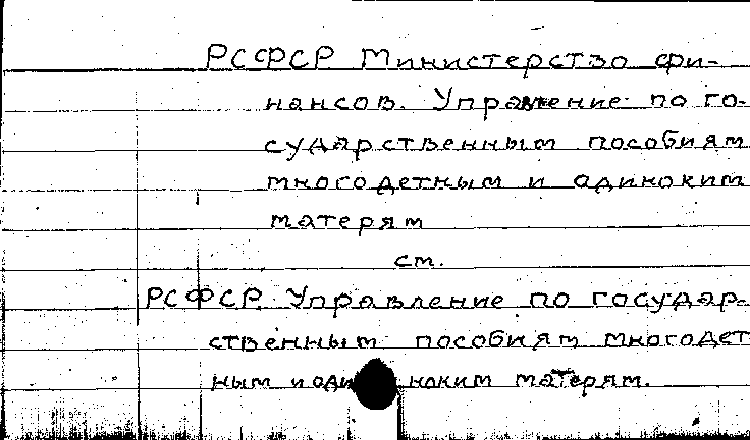 РСФСР Министерство фи-
нансов. Управление по го-
сударственным пособиям
многодетным и одиноким
матерям
см.
РСФСР. Управление по государ-
ственным пособиям многодет
ным и одиноким матерям.